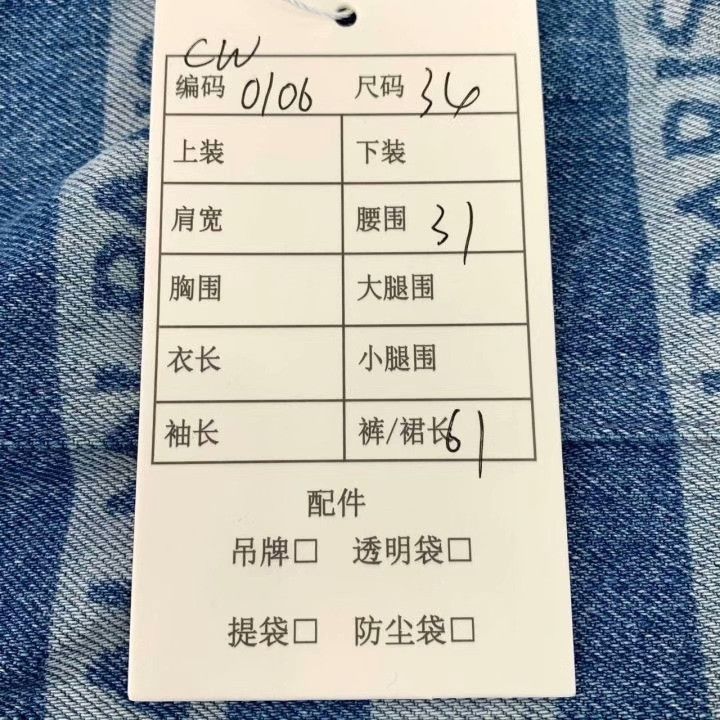 CW
编码 0106 尺码 34
上装 下装
肩宽 腰围 31
胸围 大腿围
衣长 小腿围
袖长 裤/裙长 61
配件
吊牌□ 透明袋□
提袋□ 防尘袋□
PARIS